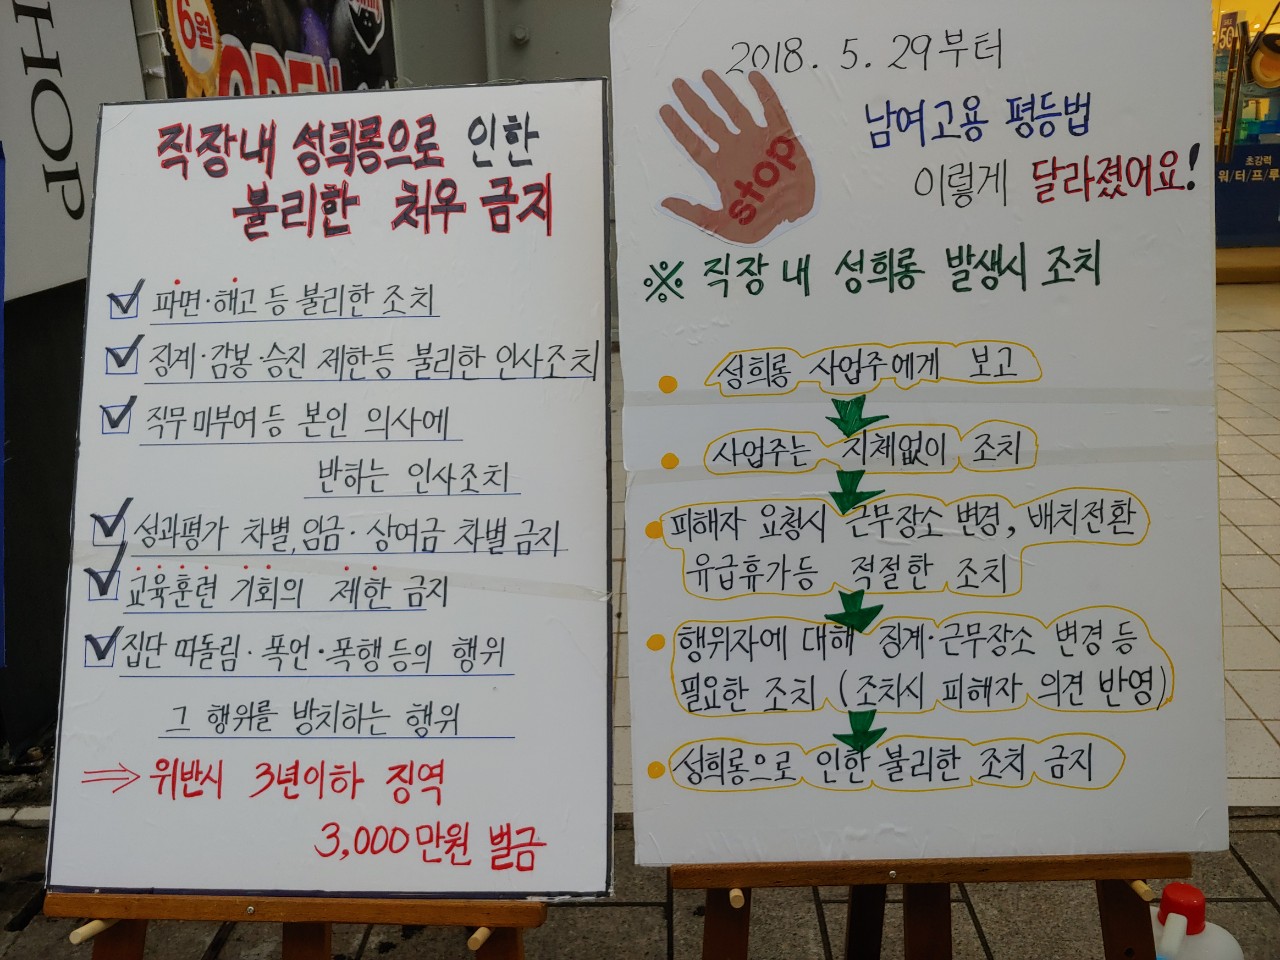 HOP
6월
OPEN
직장내 성희롱으로 인한
불리한 처우 금지
파면·해고 등 불리한 조치
징계·감봉·승진 제한등 불리한 인사조치
직무미부여등 본인 의사에
반하는 인사조치
성과평가 차별, 임금·상여금 차별금지
교육훈련 기회의 제한 금지
집단 따돌림·폭언·폭행등의 행위
그 행위를 방치하는 행위
⇒ 위반시 3년이하 징역
3,000만원 벌금
2018. 5. 29부터
stop
남여고용 평등법
이렇게 달라졌어요!
※ 직장 내 성희롱 발생시 조치
성희롱 사업주에게 보고
사업주는 지체없이 조치
피해자 요청시 근무장소 변경, 배치전환
유급휴가등 적절한 조치
행위자에 대해 징계·근무장소 변경 등
필요한 조치 (조치시 피해자 의견 반영)
성희롱으로 인한 불리한 조치 금지
초강력
워/터/프/루